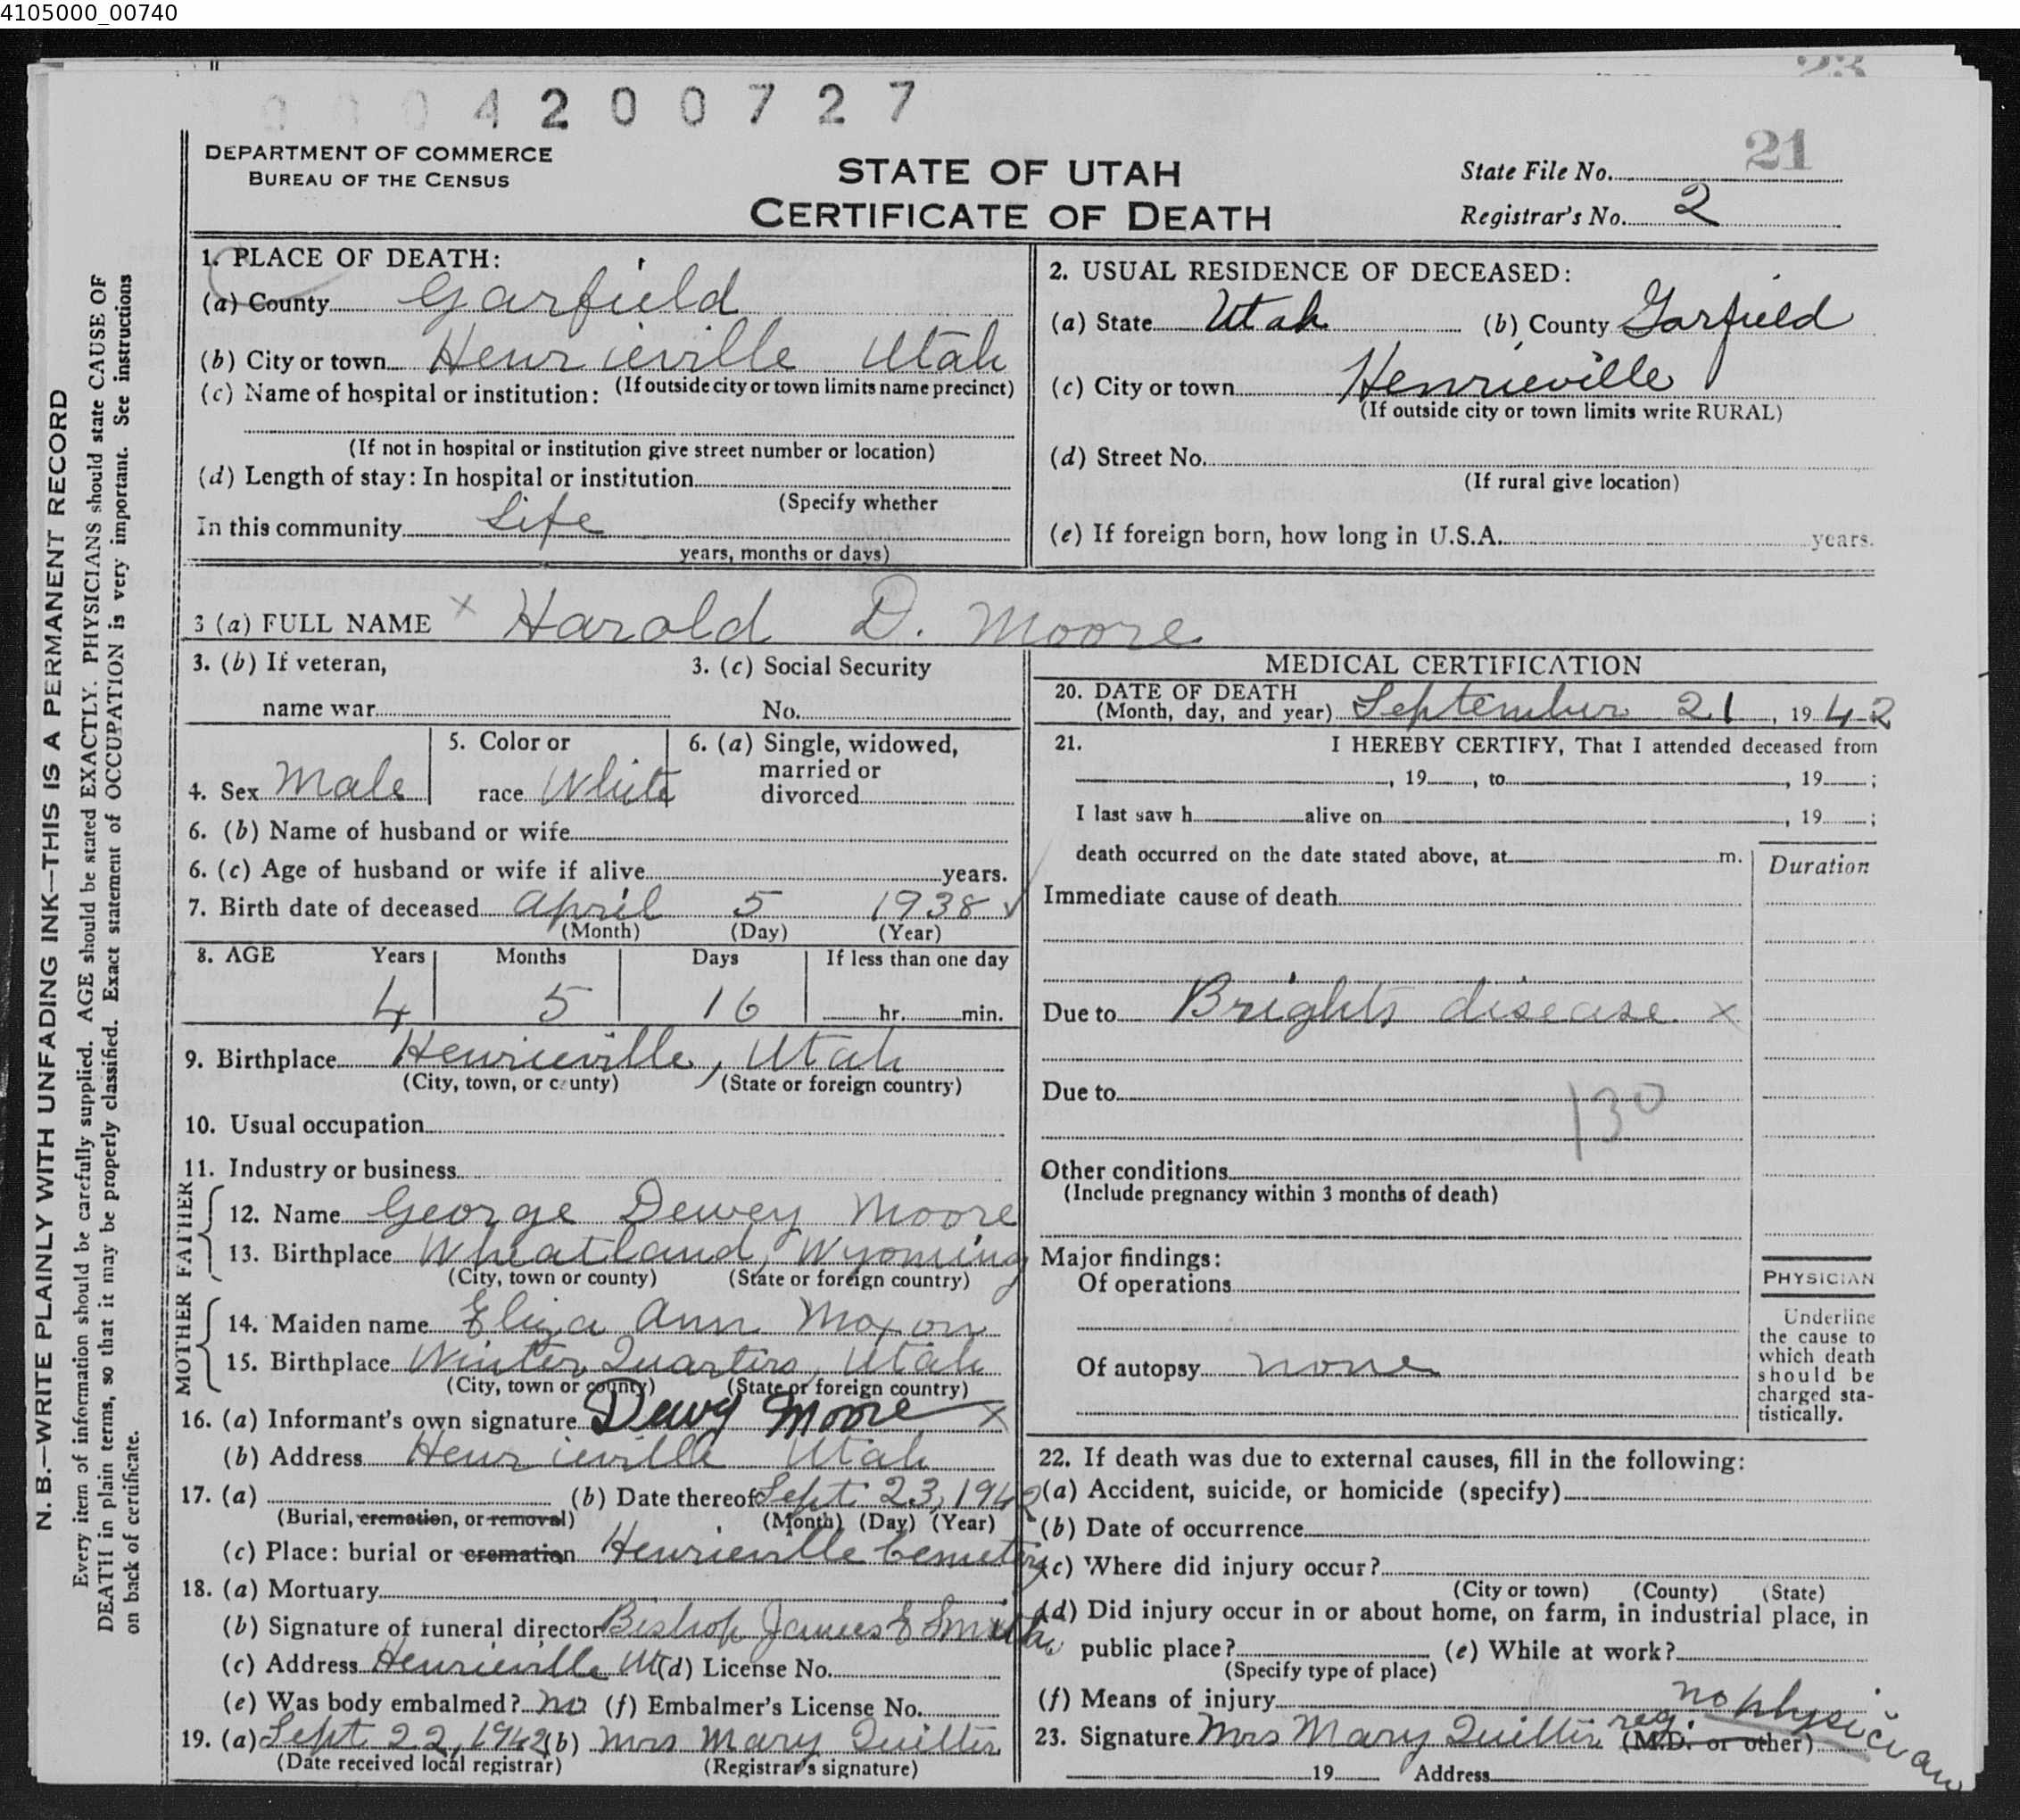 4105000_00740
23
0 0 0 4 2 0 0 7 2 7
21
DEPARTMENT OF COMMERCE
BUREAU OF THE CENSUS
STATE OF UTAH
CERTIFICATE OF DEATH
State File No.
Registrar's No. 2
N. B.—WRITE PLAINLY WITH UNFADING INK—THIS IS A PERMANENT RECORD
Every item of information should be carefully supplied. AGE should be stated EXACTLY. PHYSICIANS should state CAUSE OF
DEATH in plain terms, so that it may be properly classified. Exact statement of OCCUPATION is very important. See instructions
on back of certificate.
1. PLACE OF DEATH:
(a) County Garfield
(b) City or town Henrieville Utah
(c) Name of hospital or institution: (If outside city or town limits name precinct)
(If not in hospital or institution give street number or location)
(d) Length of stay: In hospital or institution
(Specify whether
In this community Life
years, months or days)
2. USUAL RESIDENCE OF DECEASED:
(a) State Utah (b) County Garfield
(c) City or town Henrieville
(If outside city or town limits write RURAL)
(d) Street No.
(If rural give location)
(e) If foreign born, how long in U.S.A. years.
3 (a) FULL NAME x Harold D. Moore
3. (b) If veteran, 3. (c) Social Security
name war No.
4. Sex Male 5. Color or race White 6. (a) Single, widowed, married or divorced
6. (b) Name of husband or wife
6. (c) Age of husband or wife if alive years.
7. Birth date of deceased April 5 1938 ✓
(Month) (Day) (Year)
8. AGE Years Months Days If less than one day
4 5 16 hr. min.
9. Birthplace Henrieville, Utah
(City, town, or county) (State or foreign country)
10. Usual occupation
11. Industry or business
FATHER
12. Name George Dewey Moore
13. Birthplace Wheatland, Wyoming
(City, town or county) (State or foreign country)
MOTHER
14. Maiden name Eliza Ann Moxon
15. Birthplace Winter Quarters, Utah
(City, town or county) (State or foreign country)
16. (a) Informant's own signature Dewy Moore x
(b) Address Henrieville Utah
17. (a) (b) Date thereof Sept 23, 1942
(Burial, cremation, or removal) (Month) (Day) (Year)
(c) Place: burial or cremation Henrieville Cemetery
18. (a) Mortuary
(b) Signature of funeral director Bishop James E Smith
(c) Address Henrieville Ut (d) License No.
(e) Was body embalmed? no (f) Embalmer's License No.
19. (a) Sept 22, 1942 (b) Mrs Mary Quilter
(Date received local registrar) (Registrar's signature)
MEDICAL CERTIFICATION
20. DATE OF DEATH
(Month, day, and year) September 21, 1942
21. I HEREBY CERTIFY, That I attended deceased from
, 19 , to , 19 ;
I last saw h alive on , 19 ;
death occurred on the date stated above, at m.
Duration
Immediate cause of death
Due to Brights disease x
Due to
130
Other conditions
(Include pregnancy within 3 months of death)
Major findings:
Of operations
Of autopsy none
PHYSICIAN
Underline
the cause to
which death
should be
charged sta-
tistically.
22. If death was due to external causes, fill in the following:
(a) Accident, suicide, or homicide (specify)
(b) Date of occurrence
(c) Where did injury occur?
(City or town) (County) (State)
(d) Did injury occur in or about home, on farm, in industrial place, in
public place? (e) While at work?
(Specify type of place)
(f) Means of injury
no physician
23. Signature Mrs Mary Quilter reg. (M.D. or other)
19 Address